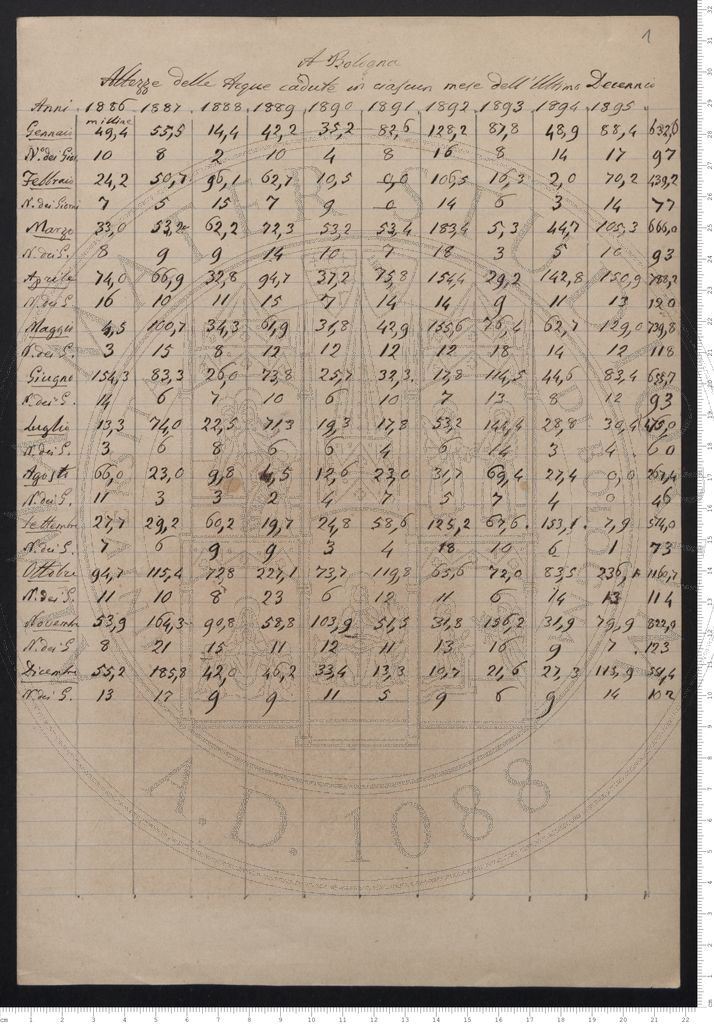 1
A Bologna
Altezze delle Acque cadute in ciascun mese dell'Ultimo Decennio
Anni 1886 1887 1888 1889 1890 1891 1892 1893 1894 1895
Gennaio 49,4 55,5 14,4 42,2 35,2 82,6 128,2 87,8 48,9 88,4 632,6
N.o dei Gior. 10 8 2 10 4 8 16 8 14 17 97
Febbraio 24,2 50,7 96,1 62,7 10,5 0,0 106,5 16,3 2,0 70,2 439,2
N. dei Giorni 7 5 15 7 9 0 14 6 3 14 77
Marzo 33,0 53,2 62,2 72,3 53,2 53,4 183,4 5,3 44,7 105,3 666,0
N. dei G. 8 9 9 14 10 7 18 3 5 10 93
Aprile 74,0 66,9 32,8 94,7 37,2 75,8 154,4 29,2 142,8 150,9
N. dei G. 16 10 11 15 7 14 14 9 11 13 120
Maggio 4,5 100,7 34,3 61,9 31,8 42,9 155,6 76,4 62,7 129,0
N. dei G. 3 15 8 12 12 12 12 18 14 12 118
Giugno 154,3 83,3 26,0 73,8 25,7 32,3 17,8 114,5 44,6 83,4
N. dei G. 14 6 7 10 6 10 7 13 8 12 93
Luglio 13,3 74,0 22,5 71,3 19,3 17,8 53,2 28,8 30,4
N. dei G. 3 6 8 6 6 4 6 14 3 4 60
Agosto 66,0 23,0 9,8 12,6 23,0 31,7 69,4 27,4 0,0
N. dei G. 11 3 3 2 4 7 5 7 4 0 46
Settembre 27,7 29,2 60,2 19,7 24,8 58,6 125,2 67,6 153,1 7,9 574,0
N. dei G. 7 6 9 9 3 4 18 10 6 1 73
Ottobre 94,7 115,4 72,8 227,1 73,7 119,8 65,6 72,0 83,5 236,1 1160,7
N. dei G. 11 10 8 23 6 12 11 6 14 13 114
Novembre 53,9 164,3 90,8 58,8 103,9 51,5 31,8 156,2 31,9 79,9 822,9
N. dei G. 8 21 15 11 12 11 13 16 9 7 123
Dicembre 55,2 185,8 42,0 46,2 33,4 13,3 10,7 21,6 27,3 113,9
N. dei G. 13 17 9 9 11 5 9 6 9 14 102
A.D. 1088